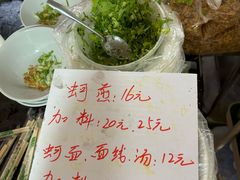 蚵煎:16元
加料:20元.25元
蚵面.面线.汤:12元
加料